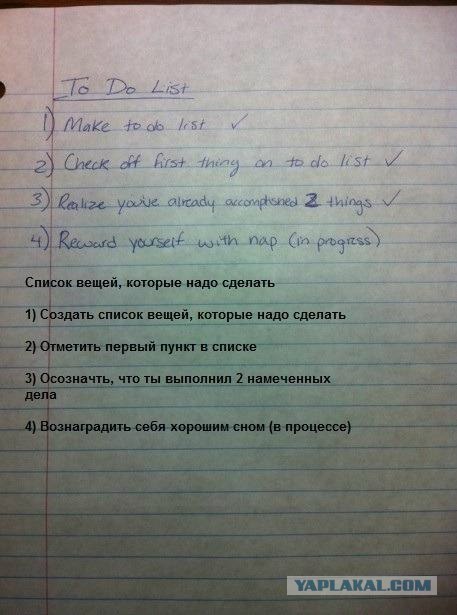 To Do List
1) Make to do list ✓
2) Check off first thing on to do list ✓
3) Realize you've already accomplished 2 things ✓
4) Reward yourself with nap (in progress)
Список вещей, которые надо сделать
1) Создать список вещей, которые надо сделать
2) Отметить первый пункт в списке
3) Осозначть, что ты выполнил 2 намеченных
дела
4) Вознаградить себя хорошим сном (в процессе)
YAPLAKAL.COM